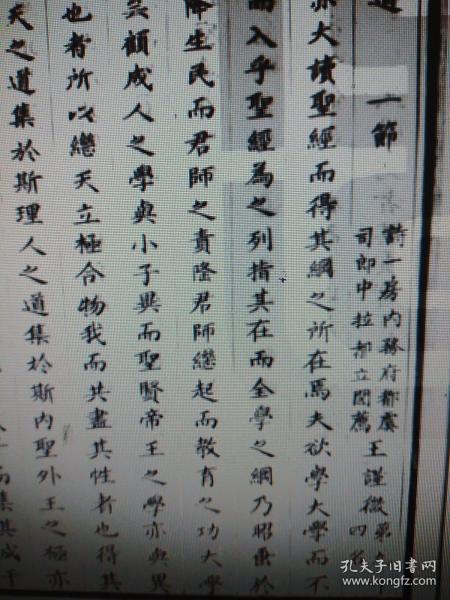 道 一節
詩一房內務府都虞
司郎中拉都立閱薦
王謹徵第
四名
亦大讀聖經而得其綱之所在焉夫欲學大學而不
而入乎聖經為之列指其在而全學之綱乃昭垂於
降生民而君師之責隆君師繼起而教育之功大學
顧成人之學與小子異而聖賢帝王之學亦與異
也者所以繼天立極合物我而共盡其性者也得其
天之道集於斯理人之道集於斯內聖外王之極亦
而集其成于
孔夫子旧书网
book.kongfz.com